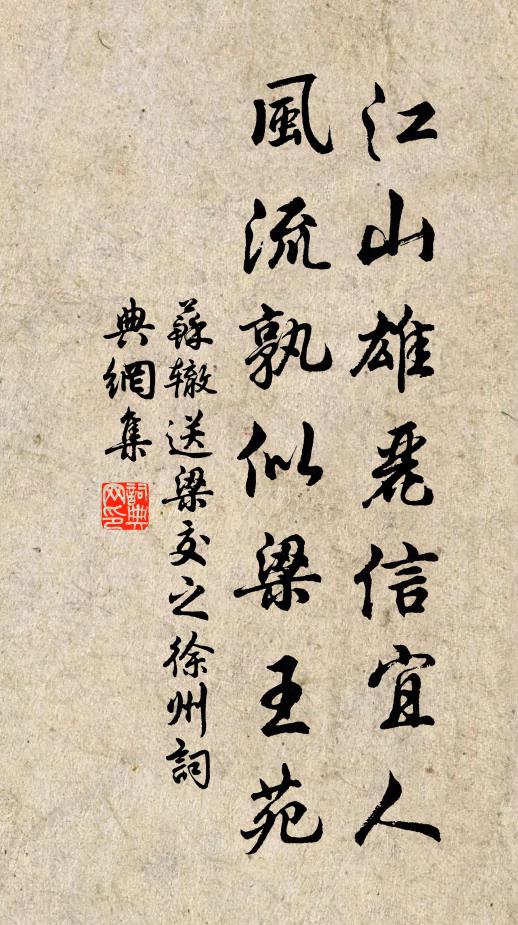 江山雄麗信宜人
風流孰似梁王苑
蘇辙送梁交之徐州詞
典網集
詞典
网印